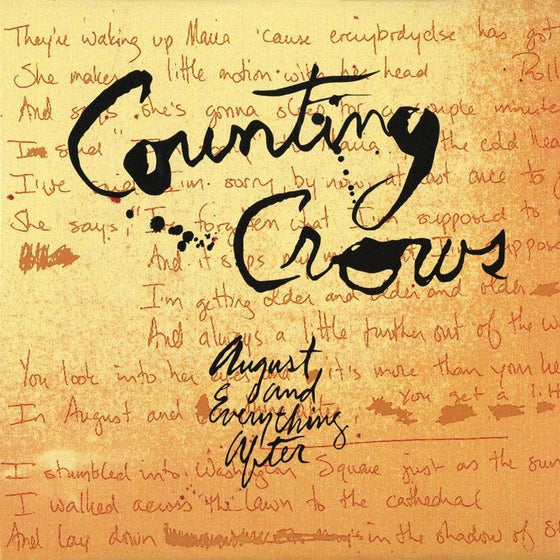 They're waking up Maria 'cause everybody else has got
She makes a little motion with her head Roll
And says she's gonna sleep for a couple minute
I've said I'm sorry by now at least once to
She says, "I'm forgotten what I'm supposed to
And it slips my mind
I'm getting older and older and older
And always a little further out of the w
You look into her eyes and it's more than you
In August and You get a lit
I stumbled into Washington Square just as the sun
I walked across the lawn to the cathedral
And lay down in the shadow of S
Counting
Crows
August
and
Everything
After